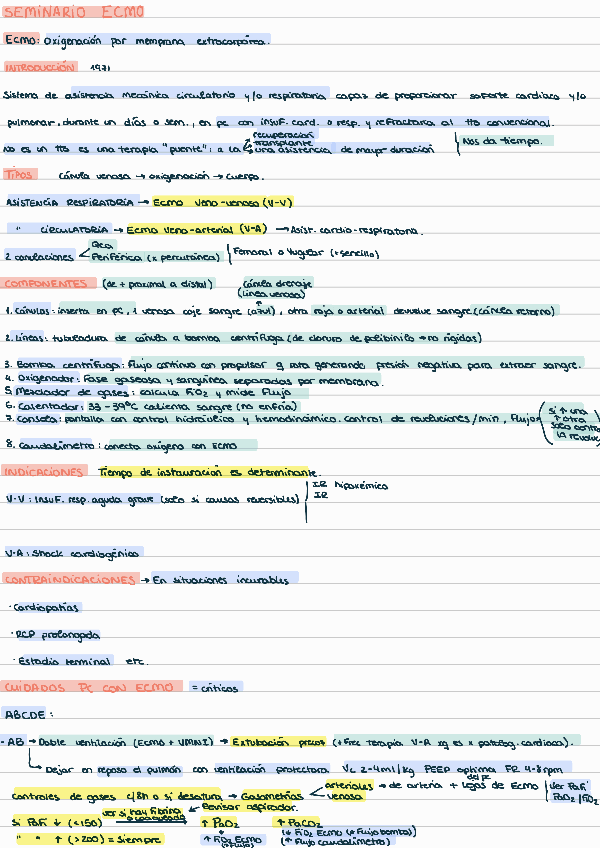 SEMINARIO ECMO
ECMO: Oxigenación por membrana extracorpórea.
INTRODUCCIÓN 1971
Sistema de asistencia mecánica circulatorio y/o respiratoria capaz de proporcionar soporte cardíaco y/o
pulmonar, durante un días o sem., en pc con insuf. card. o resp. y refractaria al tto convencional.
No es un tto es una terapia "puente": a la recuperación
transplante
una asistencia de mayor duración
Nos da tiempo.
TIPOS cánula venosa → oxigenación → cuerpo.
ASISTENCIA RESPIRATORIA → Ecmo veno-venosa (V-V)
" CIRCULATORIA → Ecmo veno-arterial (V-A) → Asist. cardio-respiratoria.
2 canulaciones Qca
Periférica (x percutánea) Femoral o Yugular (+ sencillo)
COMPONENTES (de + proximal a distal) cánula drenaje
(línea venosa)
1. Cánulas: inserta en pc, 1 venosa coje sangre (azul), otra roja o arterial devuelve sangre (cánula retorno)
2. Líneas: tubuladura de cánula a bomba centrífuga (de cloruro de polibinilo → no rígidas)
3. Bomba centrífuga: Flujo continuo con propulsor q rota generando presión negativa para extraer sangre.
4. Oxigenador: Fase gaseosa y sanguínea separadas por membrana.
5. Mezclador de gases: calcula FiO2 y mide flujo
6. Calentador: 33 - 39ºC calienta sangre (no enfría)
7. Consola: pantalla con control hidráulico y hemodinámico. control de revoluciones/min, Flujo
si ↑ una
↑ otra
solo contro
la revoluc
8. Caudalímetro: conecta oxígeno con ECMO
INDICACIONES Tiempo de instauración es determinante.
V-V: Insuf. resp. aguda grave (solo si causas reversibles) IR hipoxémico
IR
V-A: Shock cardiogénico
CONTRAINDICACIONES → En situaciones incurables
· Cardiopatías
· RCP prolongada
· Estadio terminal etc.
CUIDADOS PC CON ECMO = críticos
ABCDE:
- AB → Doble ventilación (ECMO + VMNI) → Extubación precoz (+ Frec terapia V-A xq es x patolog. cardiaca).
→ Dejar en reposo el pulmón con ventilación protectora Vc 2-4ml/kg PEEP óptima FR 4-8rpm
controles de gases c/8h o si desatura → Gasometrías arteriales → de arteria + del pc
venosa
de Ecmo Ver PaFi
PaO2/FiO2
ver si hay fibrina Revisar aspirador.
Si PaFi ↓ (<150) → ↑ PaO2 ↑ PaCO2
" " ↑ (>200) = Siempre ↑ FiO2 ECMO (↑ FiO2 Ecmo (↑ Flujo bomba)
(↑ Flujo) (↑ Flujo caudalímetro)